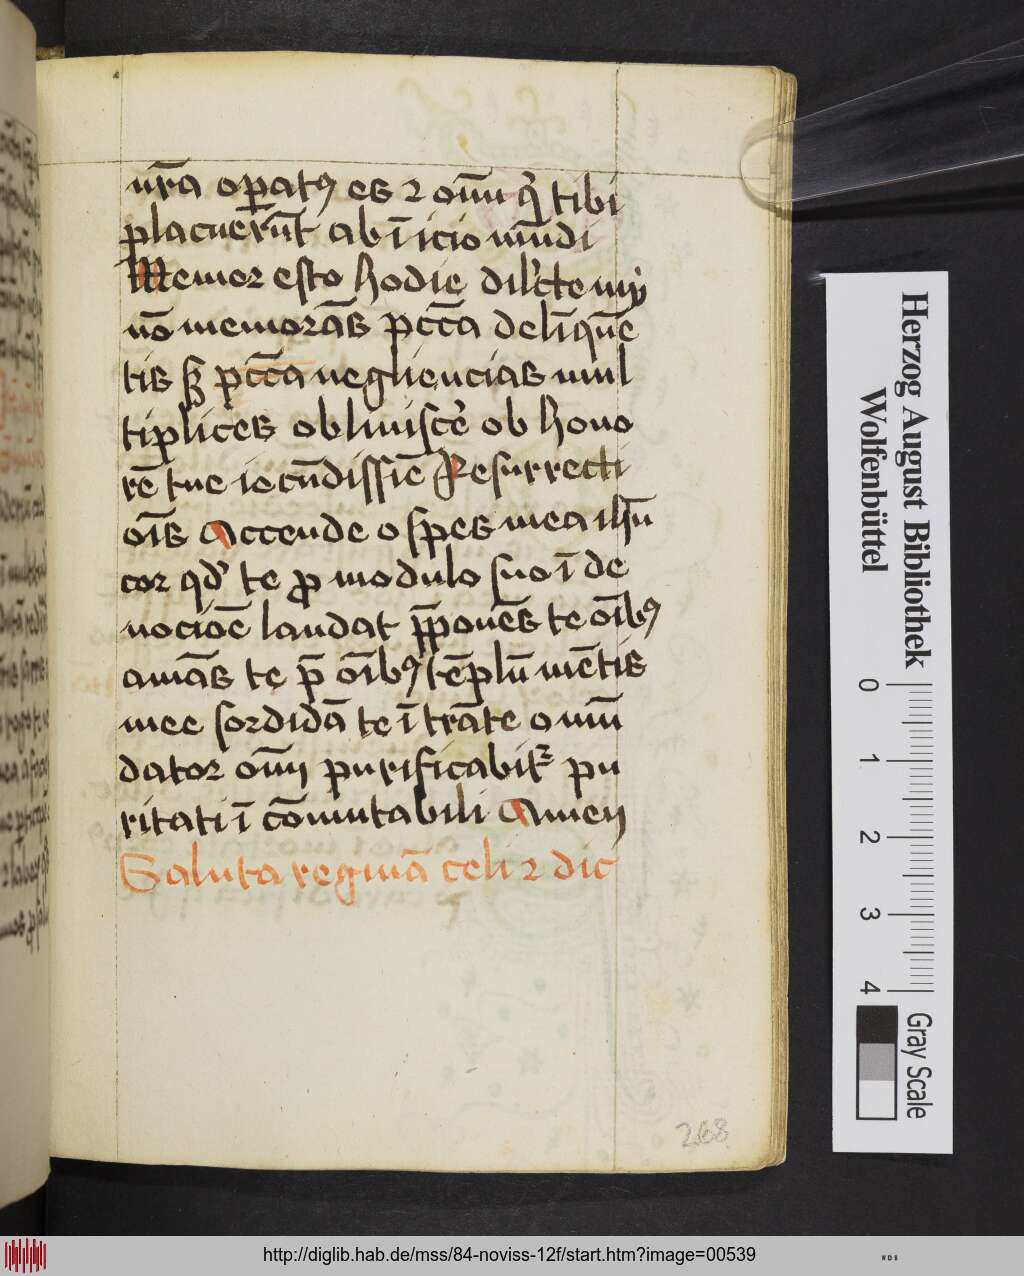 nr̄a operatꝰ es ⁊ om̄iū q̇ tibi
placuerūt ab īicio mūdi
Memor esto hodie dil̓cte my
nō memorās pctā̄ delīquē
tis sʒ pctā̄ negliencias mul
tiplices obliuiscē ob hono
rē tue iocūdissīe Resurrecti
oīs Accende o spes mea ihū
cor qd̓ te ꝓ modulo suo ī de
uocioē laudat p̄ponēs te oībꝰ
amās te p̄ oībꝰ tēplū mētis
mee sordidā te ītrāte o mū
dator om̄iū purificabiť pu
ritati īcōmutabili Amen
Saluta reginā celi ⁊ dic
268
Herzog August Bibliothek
Wolfenbüttel
0 1 2 3 4
Gray Scale
http://diglib.hab.de/mss/84-noviss-12f/start.htm?image=00539